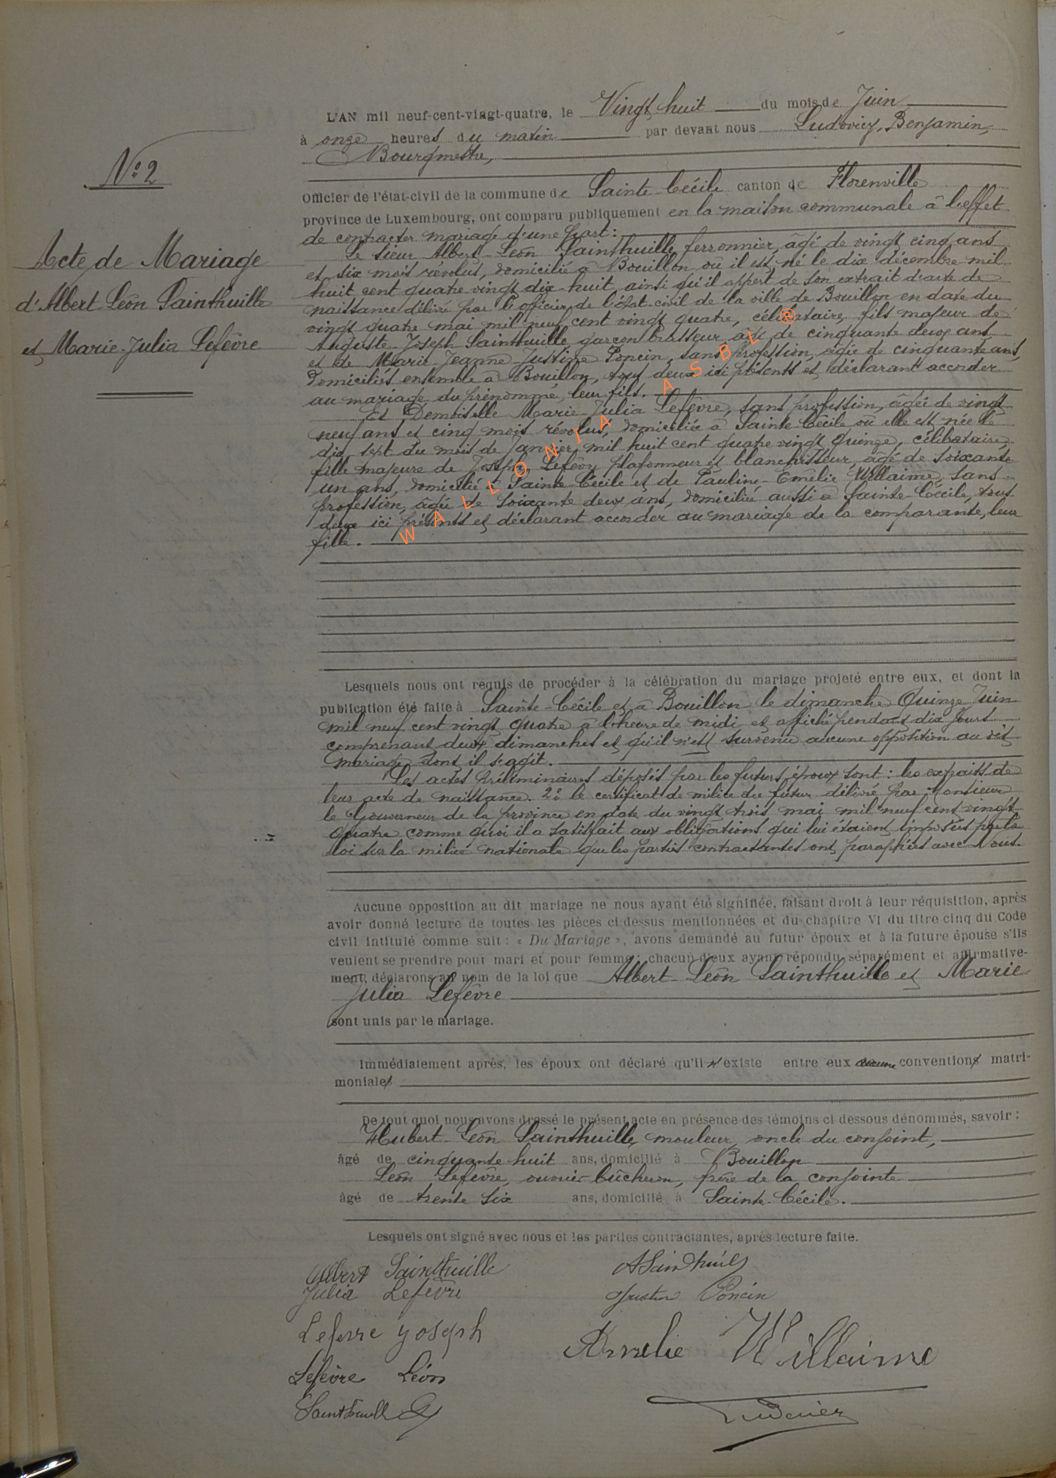 L'AN mil neuf-cent-vingt-quatre, le Vingt huit du mois de Juin
à onze heures du matin par devant nous Ludovicy, Benjamin,
Bourgmestre,
Officier de l'état-civil de la commune de Sainte-Cécile canton de Florenville
province de Luxembourg, ont comparu publiquement en la maison communale à l'effet
de contracter mariage d'une part:
Le sieur Albert-Léon Sainthuille, ferronnier, âgé de vingt cinq ans
et six mois révolus, domicilié à Bouillon où il est né le dix décembre mil
huit cent quatre vingt dix huit, ainsi qu'il appert de son extrait d'acte de
naissance délivré par l'officier de l'état-civil de la ville de Bouillon en date du
vingt quatre mai mil neuf cent vingt quatre, célibataire, fils majeur de
Auguste-Joseph Sainthuille, garçon brasseur, âgé de cinquante deux ans
et de Marie Jeanne Justine Poncin, sans profession, âgée de cinquante ans,
domiciliés ensemble à Bouillon, tous deux ici présents et déclarant accorder
au mariage du prénommé, leur fils.
Et Demoiselle Marie-Julia Lefèvre, sans profession, âgée de vingt
neuf ans et cinq mois révolus, domiciliée à Sainte-Cécile où elle est née le
dix sept du mois de janvier mil huit cent quatre vingt quinze, célibataire
fille majeure de Joseph Lefèvre, plafonneur et blanchisseur, âgé de soixante
un ans, domicilié à Sainte-Cécile et de Pauline-Emélie Willaime, sans
profession, âgée de soixante deux ans, domiciliée aussi à Sainte-Cécile, tous
deux ici présents et déclarant accorder au mariage de la comparante, leur
fille.
N° 2
Acte de Mariage
d'Albert Léon Sainthuille
et Marie-Julia Lefèvre
WALLONIA ASBL ©
Lesquels nous ont requis de procéder à la célébration du mariage projeté entre eux, et dont la
publication été faite à Sainte-Cécile et à Bouillon le dimanche Quinze Juin
mil neuf cent vingt quatre à l'heure de midi et affiché pendant dix jours
comprenant deux dimanches et qu'il n'est survenu aucune opposition au dit
mariage dont il s'agit.
Les actes préliminaires déposés par les futurs époux sont: les extraits de
leur acte de naissance. 2° le certificat de milice du futur délivré par Monsieur
le Gouverneur de la province en date du vingt trois mai mil neuf cent vingt
quatre comme quoi il a satisfait aux obligations qui lui étaient imposées par la
loi sur la milice nationale que les parties contractantes ont paraphées avec Nous.
Aucune opposition au dit mariage ne nous ayant été signifiée, faisant droit à leur réquisition, après
avoir donné lecture de toutes les pièces ci-dessus mentionnées et du chapitre VI du titre cinq du Code
civil intitulé comme suit: « Du Mariage », avons demandé au futur époux et à la future épouse s'ils
veulent se prendre pour mari et pour femme, chacun d'eux ayant répondu séparément et affirmative-
ment, déclarons au nom de la loi que Albert-Léon Sainthuille et Marie
Julia Lefèvre
sont unis par le mariage.
Immédiatement après, les époux ont déclaré qu'il n'existe entre eux aucune conventions matri-
moniales
De tout quoi nous avons dressé le présent acte en présence des témoins ci dessous dénommés, savoir:
Hubert-Léon Sainthuille, mouleur, oncle du conjoint,
âgé de cinquante huit ans, domicilié à Bouillon
Léon Lefèvre, ouvrier-bûcheron, frère de la conjointe
âgé de trente six ans, domicilié à Sainte-Cécile.
Lesquels ont signé avec nous et les parties contractantes, après lecture faite.
Albert Sainthuille
ASainthuile
Julia Lefèvre
Justine Poncin
Lefevre Joseph
Amelie Willaime
Lefèvre Léon
Sainthuille
Ludovicy